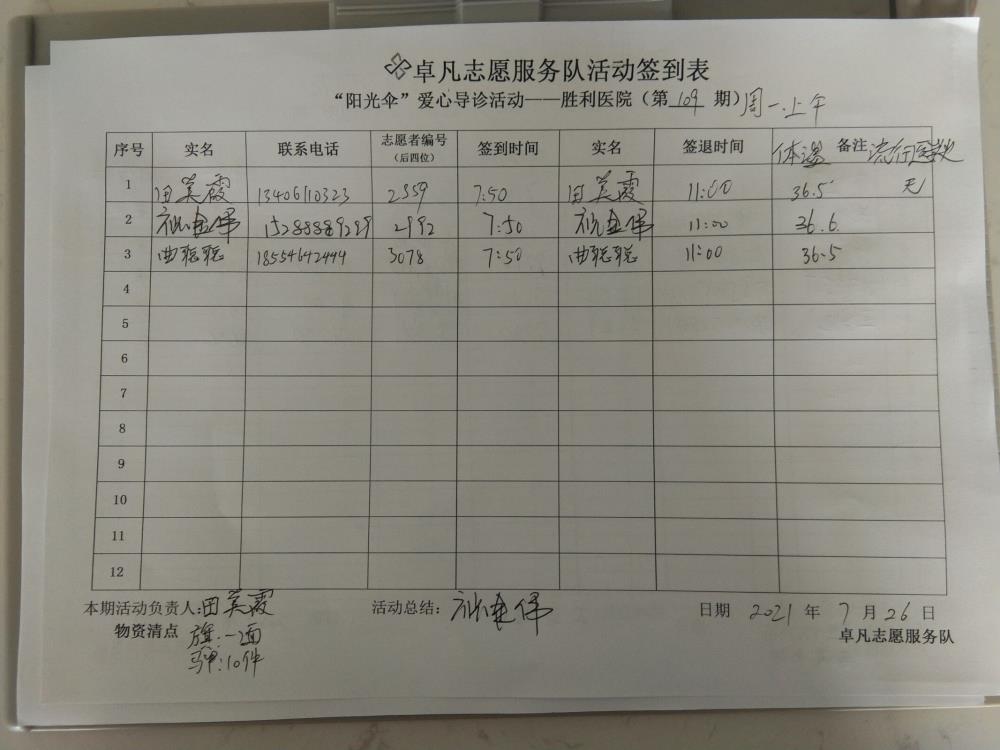 卓凡志愿服务队活动签到表
“阳光伞”爱心导诊活动——胜利医院（第 109 期）周一.上午
序号 实名 联系电话 志愿者编号（后四位） 签到时间 实名 签退时间 体温 备注
1 田美霞 13406110323 2359 7:50 田美霞 11:00 36.5 无
2 祝建伟 15288889299 2992 7:50 祝建伟 11:00 36.6
3 曲聪聪 18554642444 3078 7:50 曲聪聪 11:00 36.5
4
5
6
7
8
9
10
11
12
本期活动负责人:田美霞 活动总结: 祝建伟 日期 2021 年 7 月 26 日
物资清点 旗:一面 卓凡志愿服务队
:10件